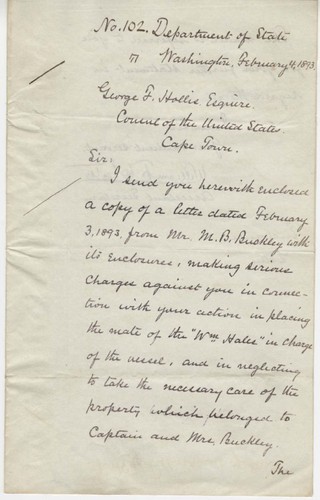 No. 102. Department of State
Washington, February 4, 1893.
George F. Hollis Esquire.
Consul of the United States.
Cape Town.
Sir:
I send you herewith enclosed
a copy of a letter dated February
3, 1893, from Mr. M. B. Buckley with
its enclosures, making serious
charges against you in connec-
tion with your action in placing
the mate of the "Wm Hales" in charge
of the vessel, and in neglecting
to take the necessary care of the
property which belonged to
Captain and Mrs. Buckley.
The